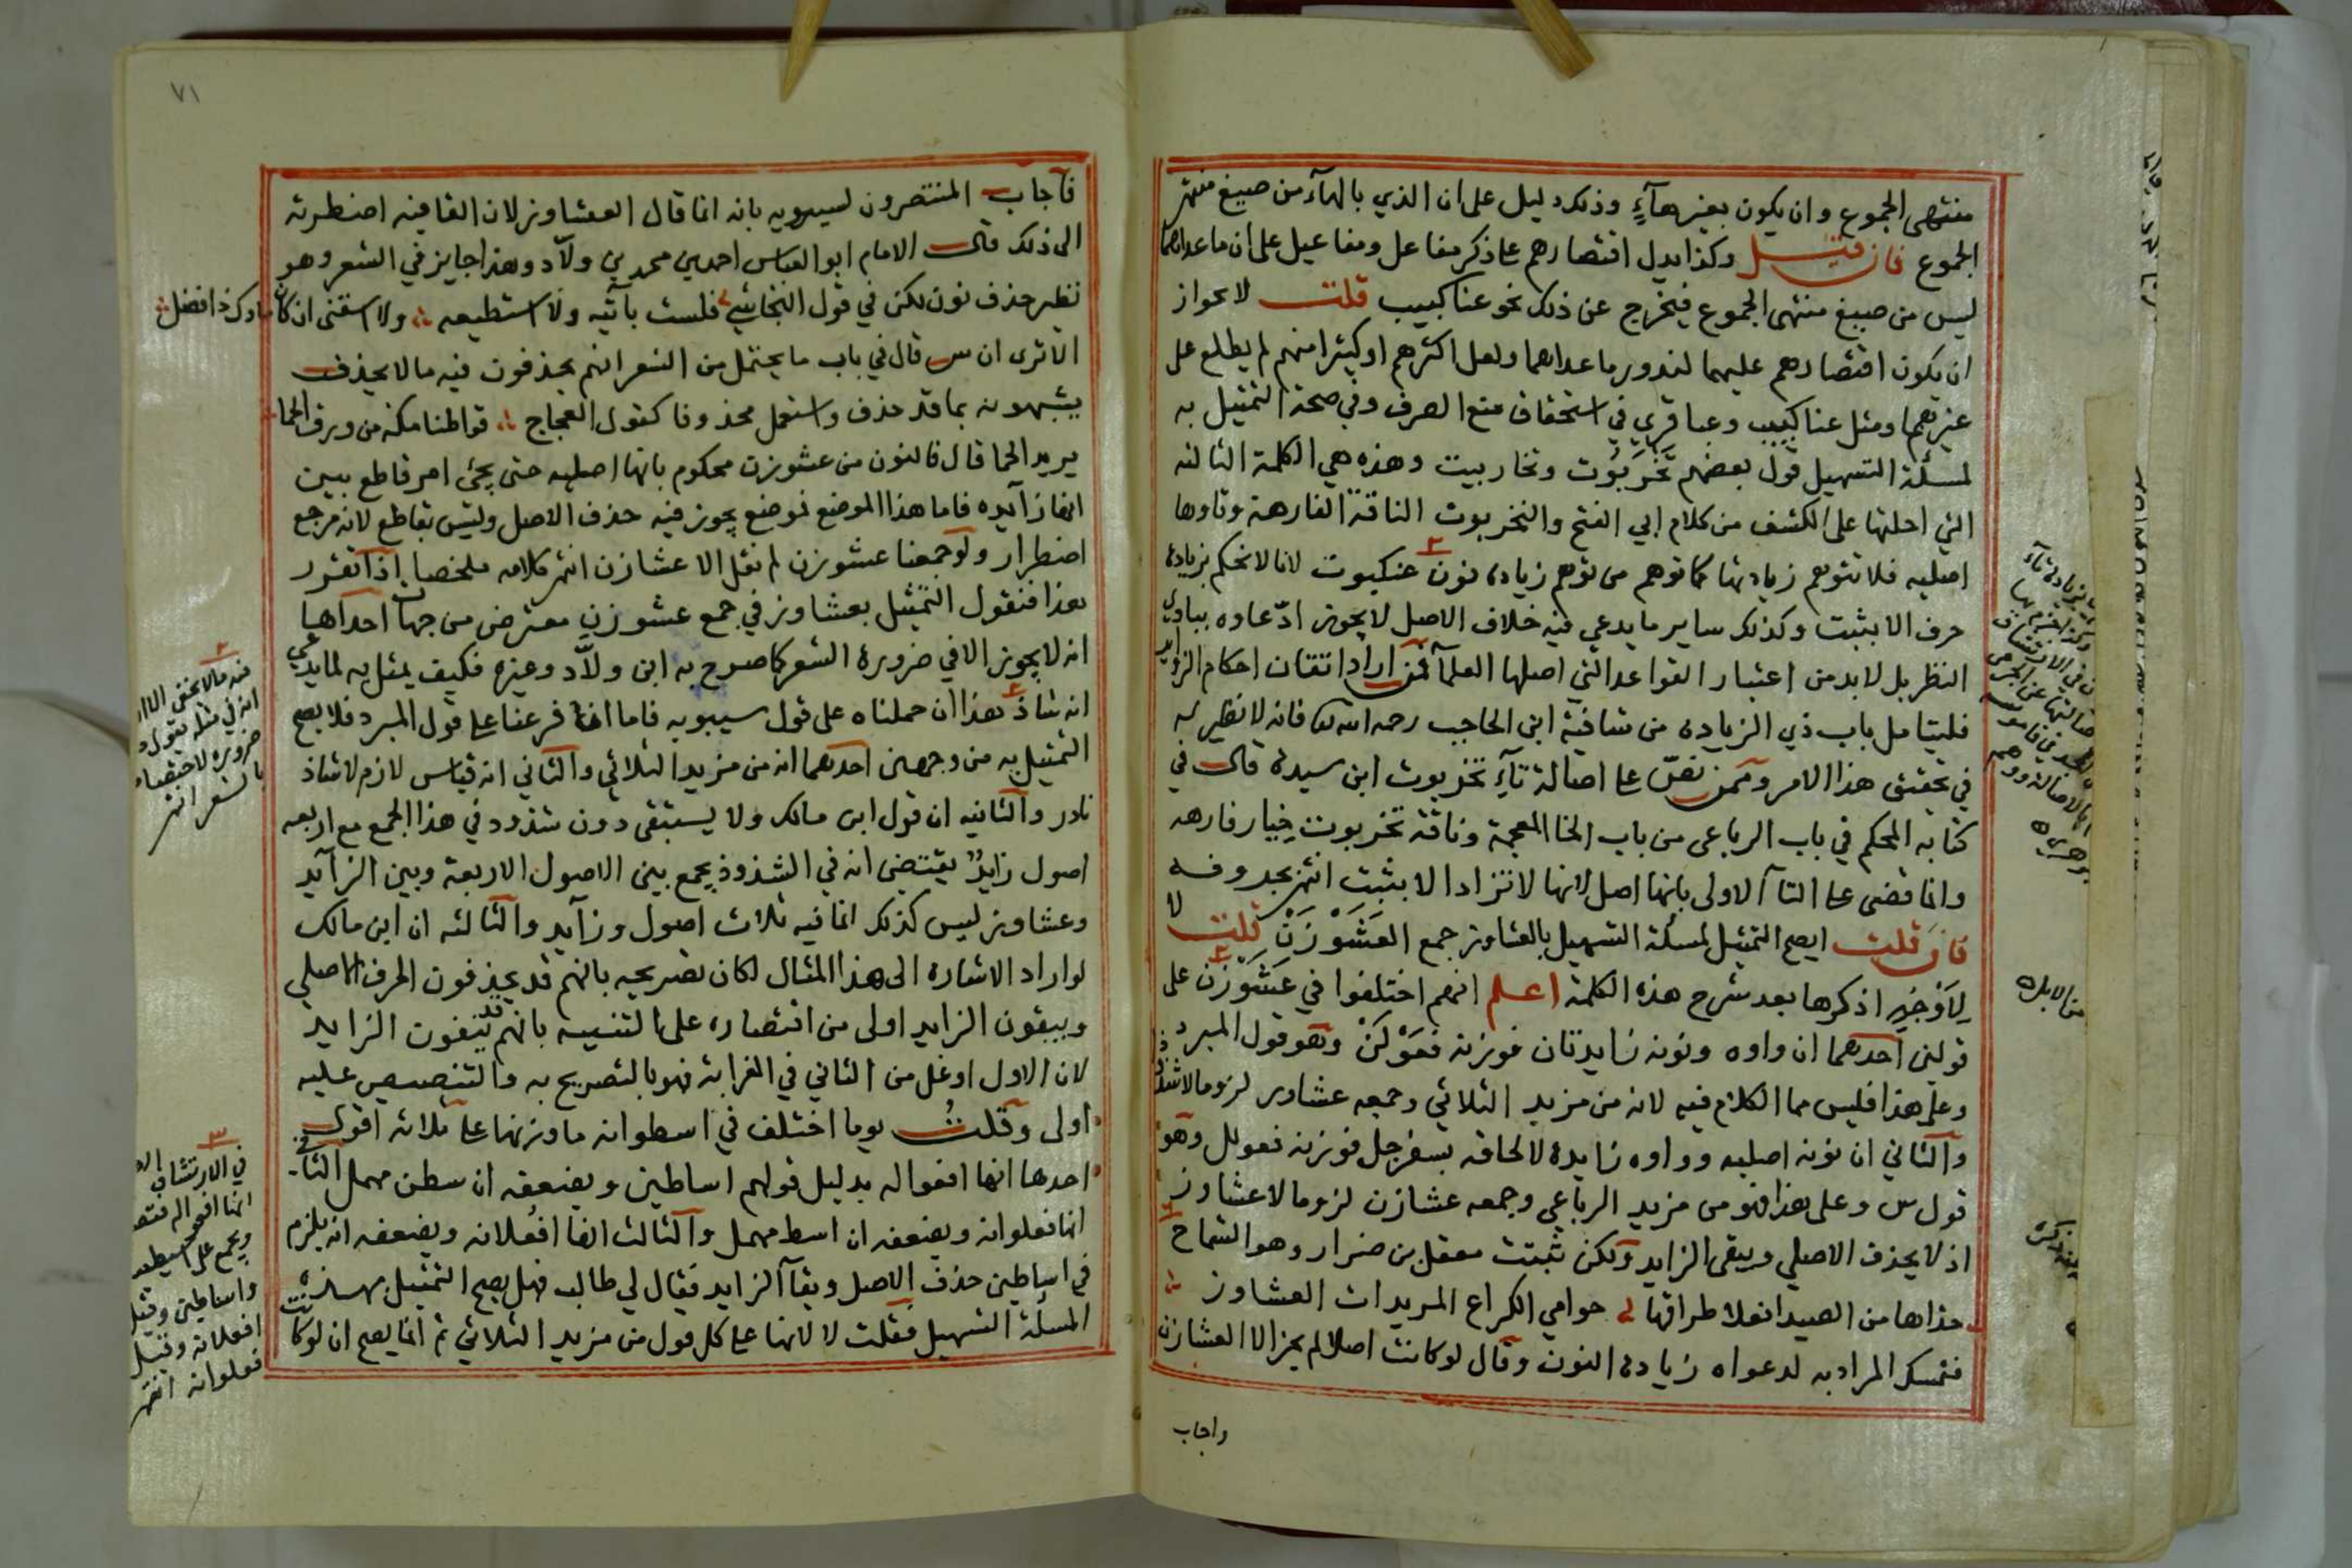 منتهى الجموع وان يكون بغيرهآءٍ وذلك دليل على ان الذي بالهآء من صيغ منتهى
الجموع فان قيل وكذا يدل اقتصارهم على ذكر مفاعل ومفاعيل على ان ما عداهما
ليس من صيغ منتهى الجموع فيخرج عن ذلك نحو عناكبيب قلت لا لجواز
ان يكون اقتصارهم عليهما لندور ما عداهما ولعل اكثرهم او كثيرا منهم لم يطلع على
غيرهما ومثل عناكبيب وعباقري في استحقاق منع الصرف وفي صحة التمثيل به
لمسئلة التسهيل قول بعضهم تَخْرَبُوت وتخاربيت وهذه هي الكلمة الثالثه
التي احلتها على الكشف من كلام ابي الفتح والتخربوت الناقة الفارهة وتاوها
اصليه فلا تتوهم زيادتها كما توهم من توهم زيادة نون عنكبوت لانا لا نحكم بزيادة
حرف الا بثبت وكذلك ساير ما يدعي فيه خلاف الاصل لا يجوز ادّعاوه ببادي
النظر بل لا بد من اعتبار القواعد التي اصلها العلمآ فمن اراد اتقان احكام الزوايد
فليتامل باب ذي الزيادة من شافية ابن الحاجب رحمه الله فانه لا نظير له
في تحقيق هذا الامر وممن نصّ على اصالة تآء تخربوت ابن سيدة قال في
كتابه المحكم في باب الرباعي من باب الخا المعجمة وناقة تخربوت خِيار فارهه
وانما قضى على التآ الاولى بانها اصل لانها لا تزاد الا بثبت انتهى بحروفه
فان قلت ايصح التمثيل لمسئلة التسهيل بالعشاوز جمع العَشَوْزَن قلت لا
لِاَوْجُهٍ اذكرها بعد شرح هذه الكلمة اعلم انهم اختلفوا في عَشَوْزَن على
قولين احدهما ان واوه ونونه زايدتان فوزنه فعَوْلَن وهو قول المبرد
وعلى هذا فليس مما الكلام فيه لانه من مزيد الثلاثي وجمعه عشاوز لزوما لا شذوذا
والثاني ان نونه اصليه وواوه زايدة لالحاقه بسفرجل فوزنه فعولل وهو
قول س وعلى هذا فهو من مزيد الرباعي وجمعه عشازن لزوما لا عشاوز
اذ لا يحذف الاصلي ويبقى الزايد ولكن ثبتت معقل بن ضرار وهو الشماخ
حذاها من الصيدا نعلا طراقها حوامي الكراع المؤيدات العشاوز
فتمسك المراد به لدعواه زيادة النون وقال لو كانت اصلا لم يجز الا العشازن
واجاب
من الابل
٧١
فآجاب المنتصرون لسيبويه بانه انما قال العشاوز لان القافيه اضطرته
الى ذلك قال الامام ابو العباس احمد بن محمد بن ولاّد وهذا جايز في الشعر وهو
نظير حذف نون لكن في قول النجاشي فلست بآتيه ولا استطيعه ولاك اسقني ان كان ماوك ذا فضل
الا ترى ان س قال في باب ما يحتمل من الشعر انهم يحذفون فيه ما لا يحذف
يشبهونه بما قد حذف واستعمل محذوفا كقول العجاج قواطنا مكة من ورق الحما
يريد الحما قال فالنون من عشوزن محكوم بانها اصليه حتى يجئ امر قاطع يبين
انها زآيده فاما هذا الموضع فموضع يجوز فيه حذف الاصل وليس بقاطع لانه مرجع
اضطرار ولو جمعنا عشوزن لم نقل الا عشازن انتهى كلامه ملخصا اذا تقرر
هذا فنقول التمثيل بعشاوز في جمع عشوزن معترض من جهات احداها
انه لا يجوز الا في ضرورة الشعر كما صرح به ابن ولاّد وغيره فكيف يمثل به لما يدعي
انه شاذ هذا ان حملناه على قول سيبويه فاما اذا فرعنا على قول المبرد فلا يصح
التمثيل به من وجهين احدهما انه من مزيد الثلاثي والثاني انه قياس لازم لا شاذ
نادر والثانيه ان قول ابن مالك ولا يستبقى دون شذوذ في هذا الجمع مع اربعه
اصول زايدٌ يقتضي انه في الشذوذ يجمع بين الاصول الاربعة وبين الزآيد
وعشاوز ليس كذلك انما فيه ثلاث اصول وزآيد والثالثه ان ابن مالك
لو اراد الاشارة الى هذا المثال لكان تصريحه بانهم قد يحذفون الحرف الاصلي
ويبقون الزايد اولى من اقتصاره على التنبيه بانهم قد يبقون الزايد
لان الاول اوغل من الثاني في الغرابة فهو بالتصريح به والتنصيص عليه
اولى وقلتُ يوما اختلف في اسطوانه ما وزنها على ثلاثه اقوال
احدها انها افعواله بدليل قولهم اساطين ويضعفه ان سطن مهمل الثاني
انها فعلوانه ويضعفه ان اسط مهمل والثالث انها افعُلانه ويضعفه انه يلزم
في اساطين حذف الاصل وبقآ الزايد فقال لي طالب فهل يصح التمثيل بهذه
المسئلة التسهيل فقلت لا لانها على كل قول من مزيد الثلاثي ثم انما يصح ان لو كانت
ضروره لاختصاصه
بالشعر انتهى
في الارتشاف
واساطين وقيل
افعلانه وقيل
فعلوانه انتهى